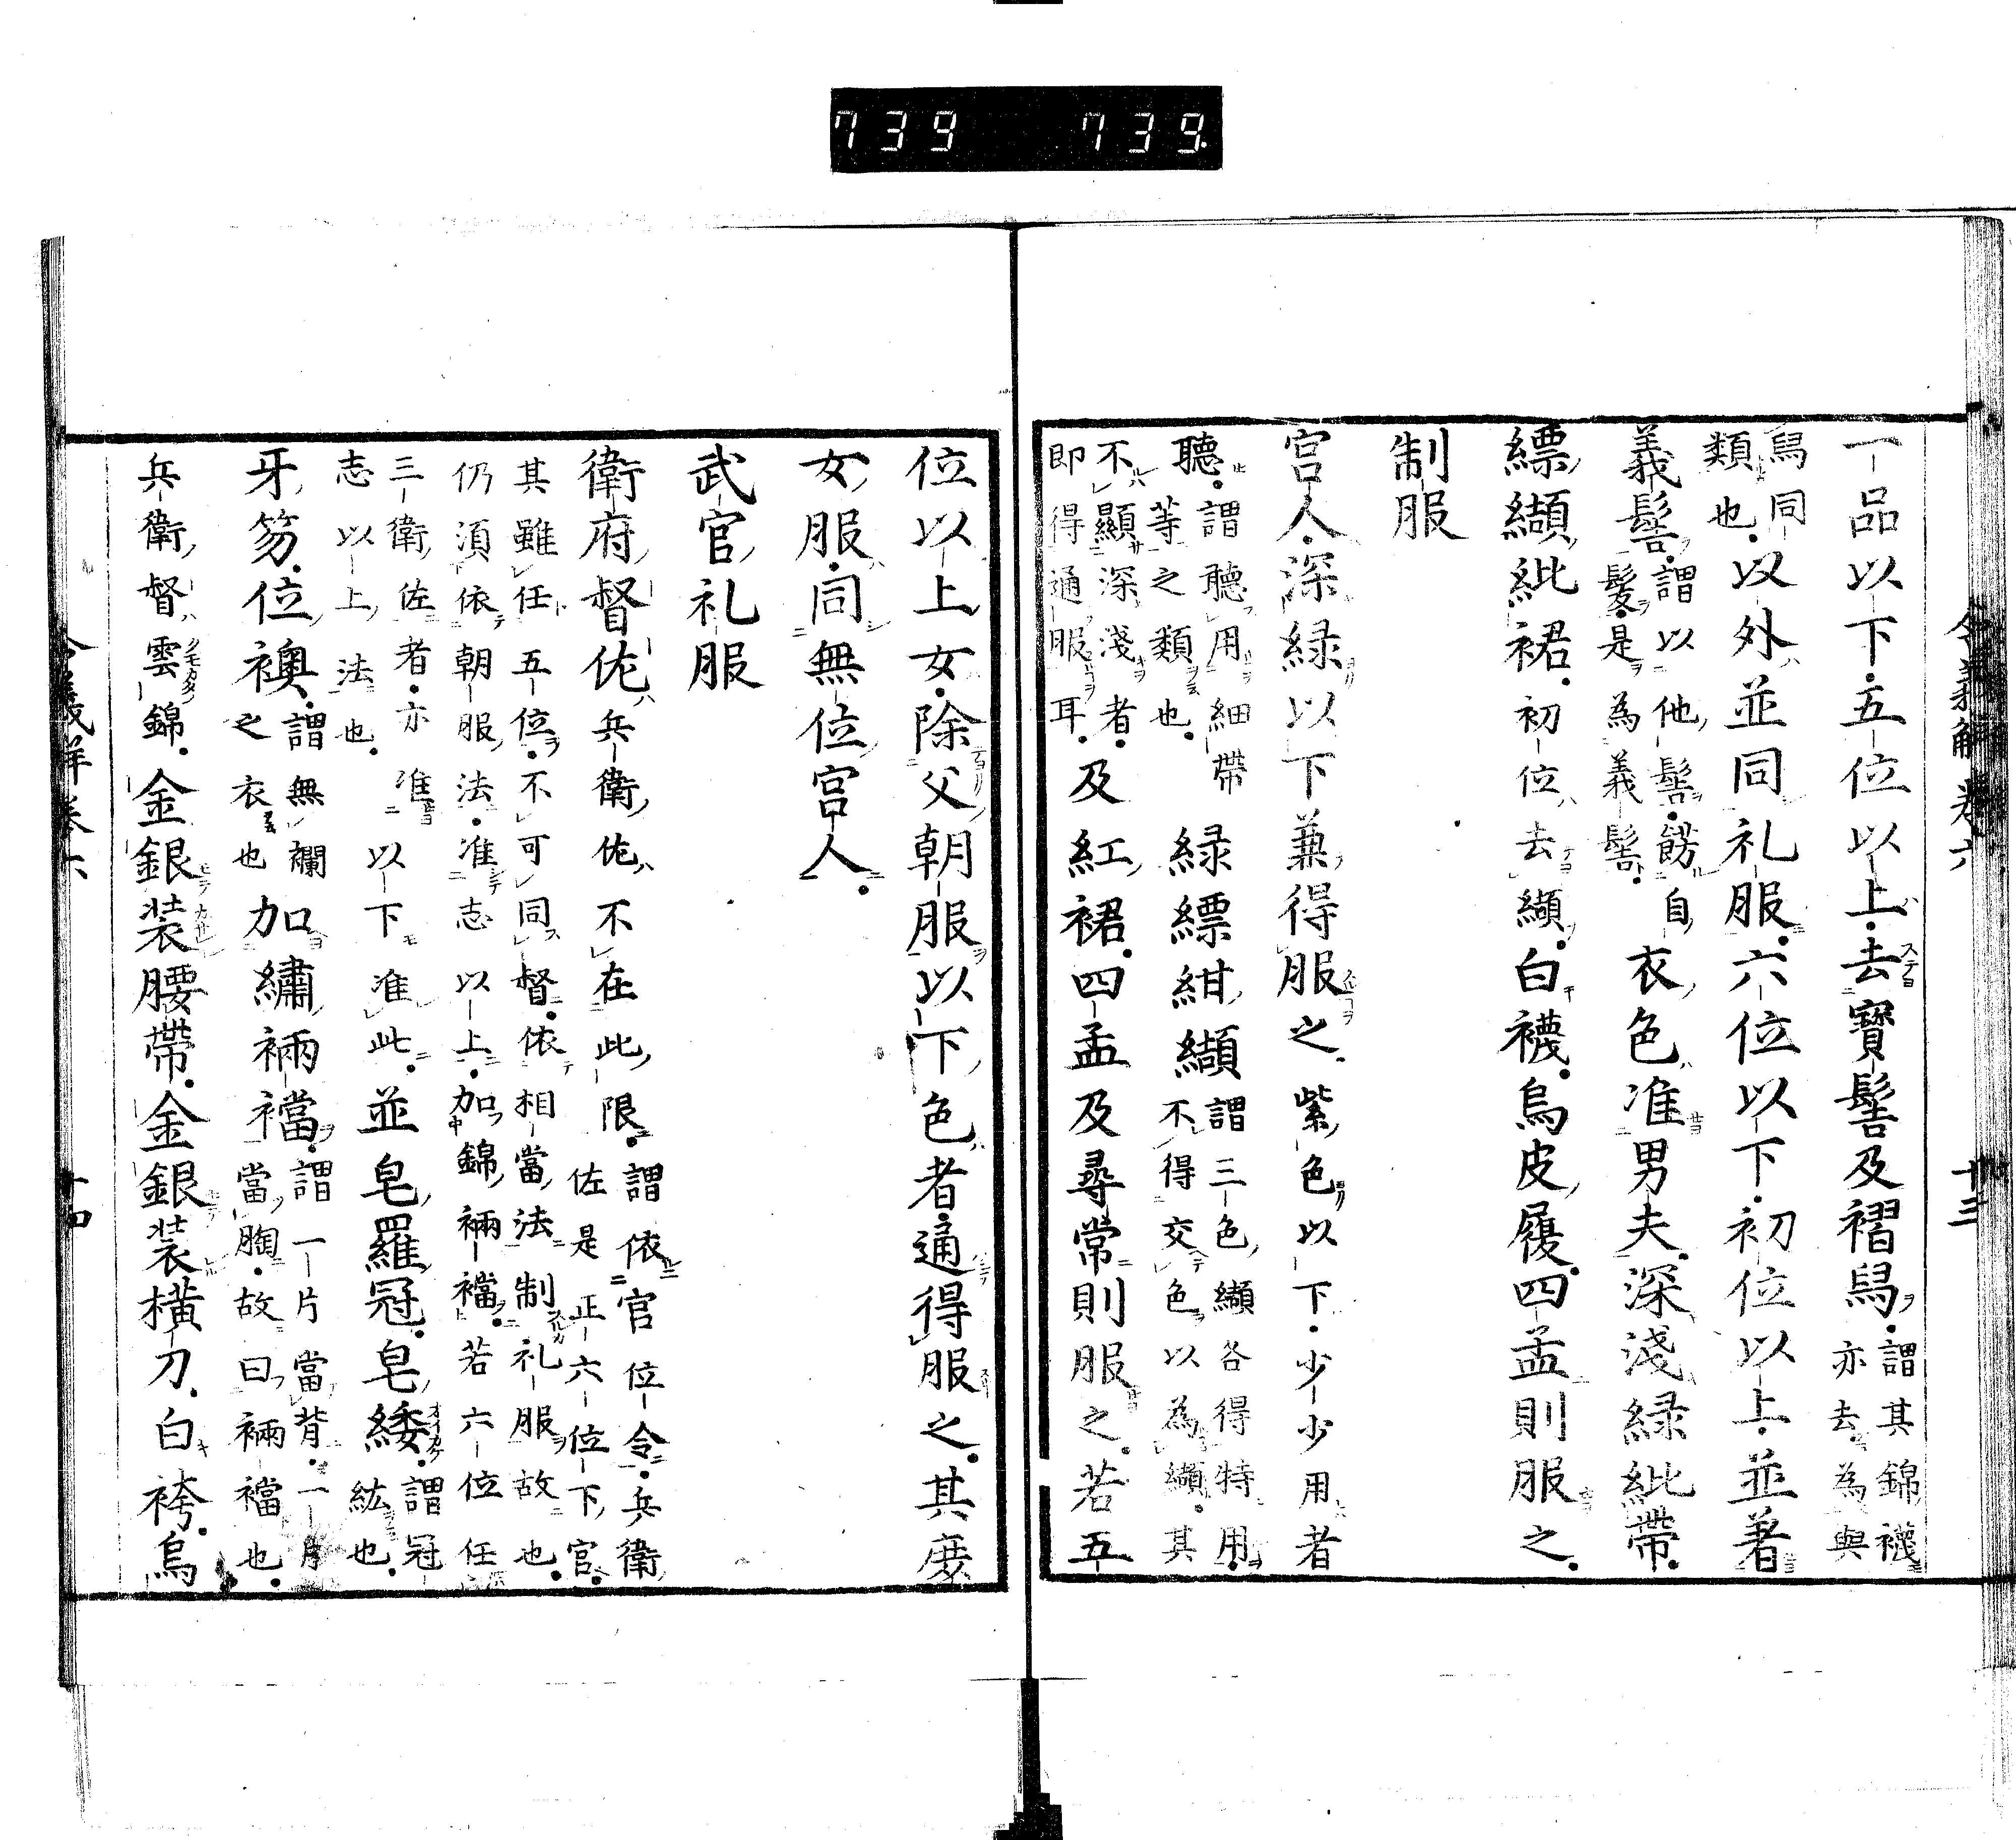 739 739
令義解卷六 十三
一品以下五位以上去寶髻及褶舄謂其錦襪
亦去為與
舄同
類也以外並同礼服六位以下初位以上並著
義髻謂以他髻餝自
髮是為義髻衣色准男夫深淺緑紕帶
縹纈紕裙初位去纈白襪烏皮履四孟則服之
制服
宮人深緑以下兼得服之紫色以下少少用者
聽謂聽用細帶
等之類也緑縹紺纈謂三色纈各得特用
不得交色以為纈其
不顯深淺者
即得通服耳及紅裙四孟及尋常則服之若五
位以上女除父朝服以下色者通得服之其庶
女服同無位宮人
武官礼服
衛府督佐兵衛佐不在此限謂依官位令兵衛
佐是正六位下官
其雖任五位不可同督依相當法制礼服故也
仍須依朝服法准志以上加錦裲襠若六位任
三衛佐者亦准
志以上法也以下准此並皂羅冠皂緌謂冠
紘也
牙笏位襖謂無襴
之衣也加繡裲襠謂一片當背一片
當胸故曰裲襠也
兵衛督雲錦金銀装腰帶金銀装横刀白袴烏
令義解卷六 十四